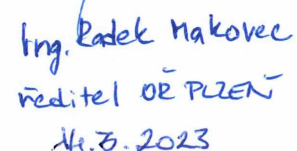 Ing. Radek Makovec
ředitel OŘ PLZEŇ
14.3.2023